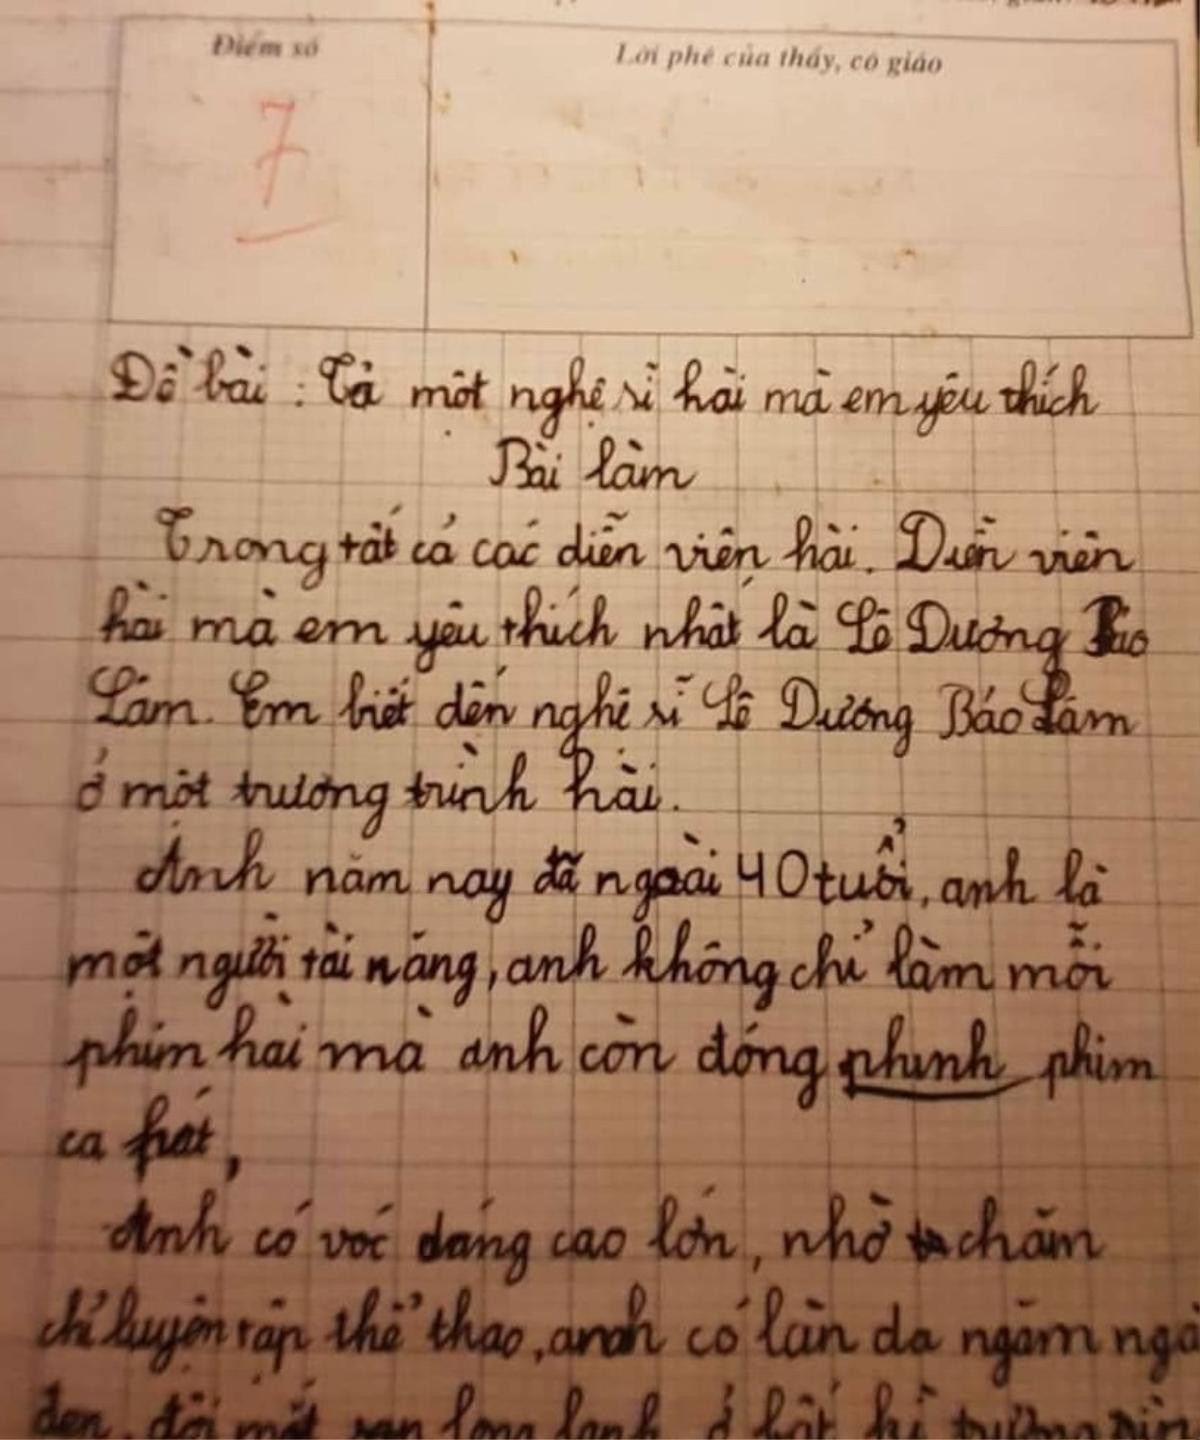 Điểm số
Lời phê của thầy, cô giáo
7
Đề bài : Tả một nghệ sĩ hài mà em yêu thích
Bài làm
Trong tất cả các diễn viên hài. Diễn viên
hài mà em yêu thích nhất là Lê Dương Bảo
Lâm. Em biết đến nghệ sĩ Lê Dương Bảo Lâm
ở một trương trình hài.
Anh năm nay đã ngoài 40 tuổi, anh là
một người tài năng, anh không chỉ làm mỗi
phim hài mà anh còn đóng phinh phim
ca hát,
Anh có vóc dáng cao lớn, nhờ chăm
chỉ luyện tập thể thao, anh có làn da ngăm ngă
đen, đôi mắt long lanh, ở bất kì trường